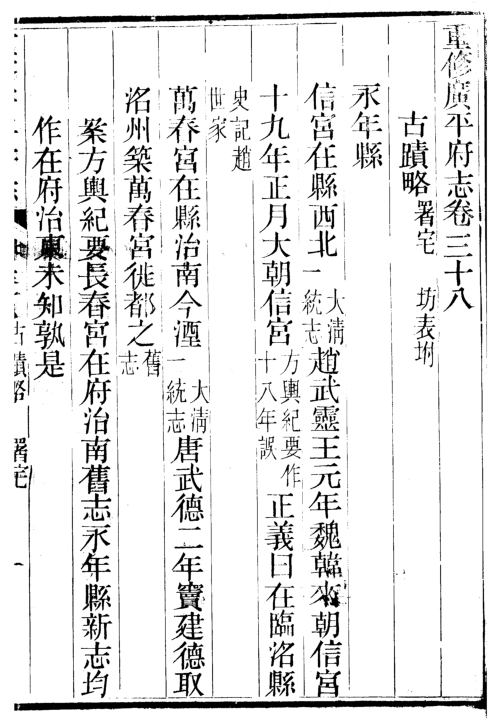 重修廣平府志卷三十八
古蹟略 署宅 坊表坿
永年縣
信宮在縣西北 大淸一統志 趙武靈王元年魏韓來朝信宮
十九年正月大朝信宮 方輿紀要作十八年誤 正義曰在臨洺縣
史記趙世家
萬春宮在縣治南今湮 大淸一統志 唐武德二年竇建德取
洺州築萬春宮徙都之 舊志
案方輿紀要長春宮在府治南舊志永年縣新志均
作在府治東未知孰是
古蹟略 署宅 一